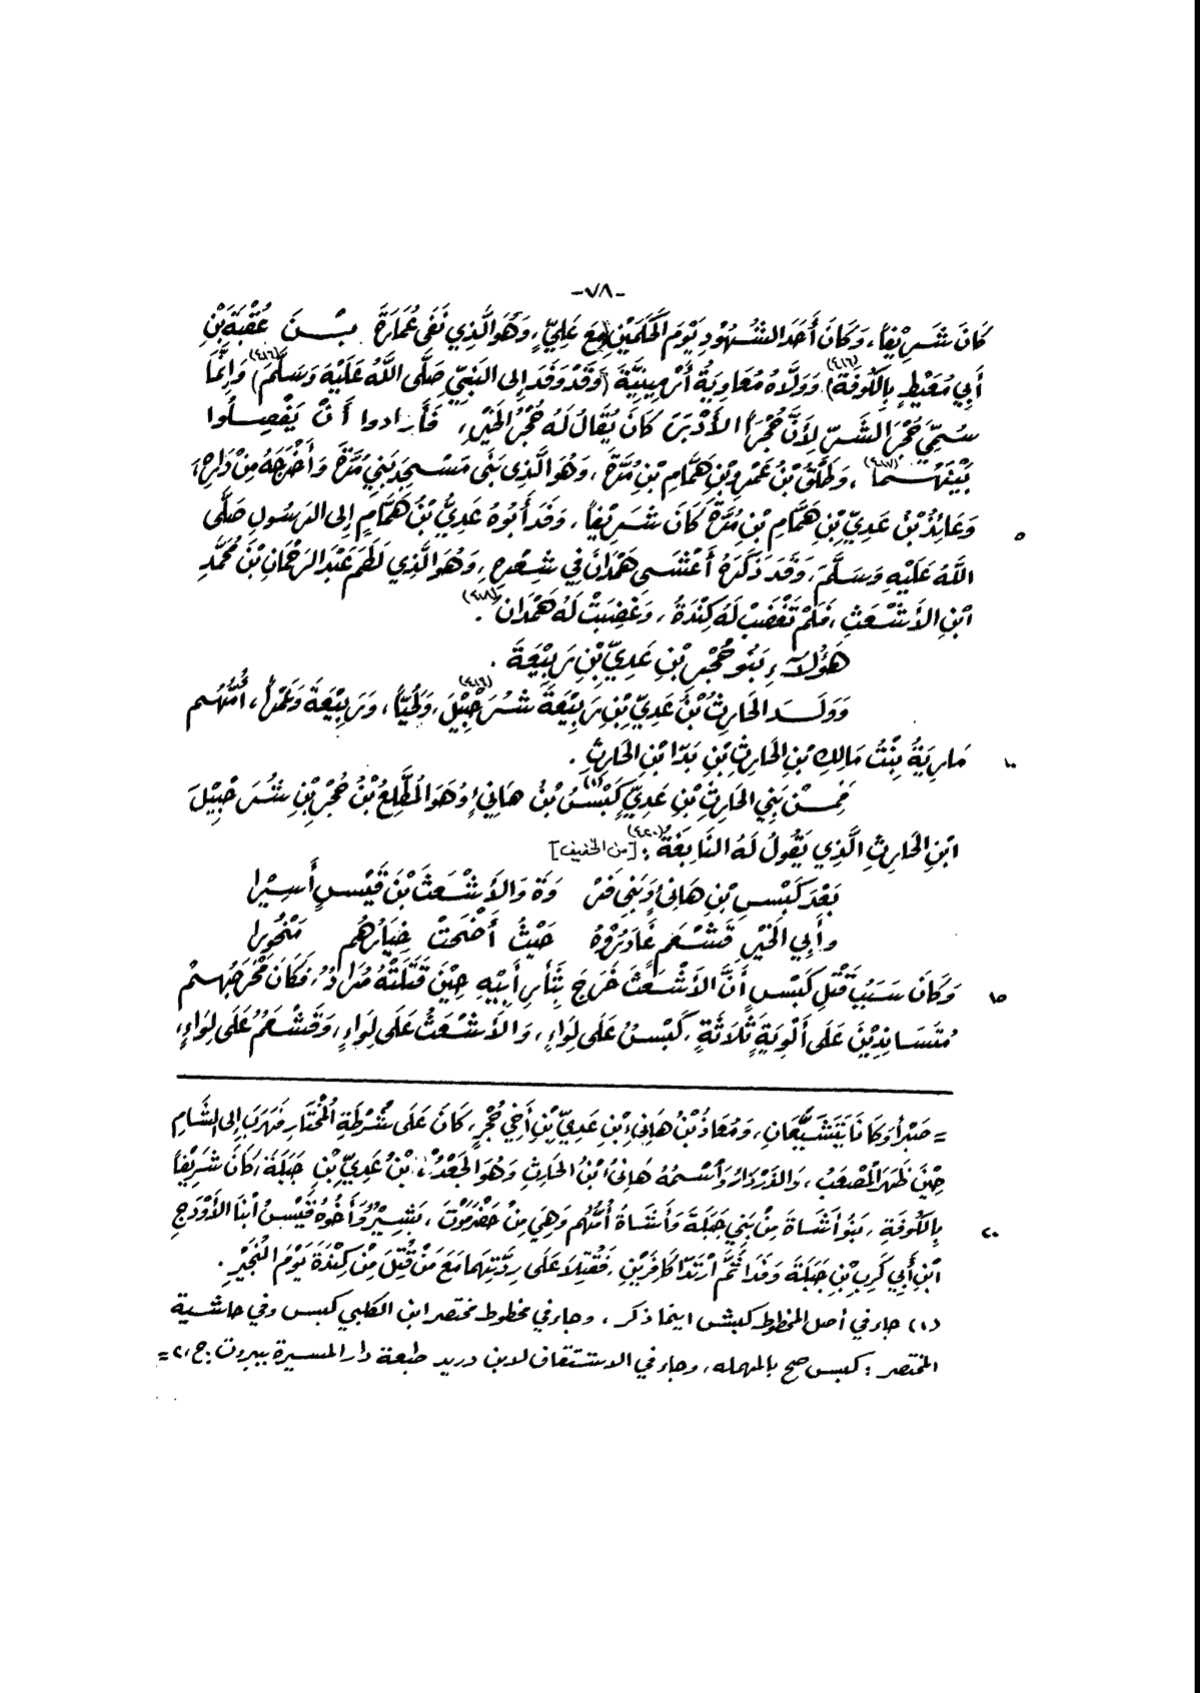 -٧٨-
كَانَ شَرِيْفاً، وَكَانَ أَحَدَ الشُّهُوْدِ يَوْمَ الْحَكَمَيْنِ مَعَ عَلِيٍّ، وَهُوَ الَّذِي نَفَى عُمَارَةَ بْنَ عُقْبَةَ بْنِ
أَبِي مُعَيْطٍ بِالْكُوفَةِ(٤١٦)، وَوَلَّاهُ مُعَاوِيَةُ أَرْمِيْنِيَّةَ (وَقَدْ وَفَدَ إِلى النَّبِيّ صَلَّى اللَّهُ عَلَيْهِ وَسَلَّمَ)(٤١٦) وَإِنَّمَا
سُمِّيَ حُجْرَ الشَّرِّ لِأَنَّ حُجْراً الأَدْبَرَ كَانَ يُقَالُ لَهُ حُجْرُ الْخَيْرِ، فَأَرَادوا أَنْ يَفْصِلُوا
بَيْنَهُمَا(٤١٧)، وَطَلْقُ بْنُ عَمْرِو بْنِ هَمَّامِ بْنِ مُرَّةَ، وَهُوَ الَّذِي بَنَى مَسْجِدَ بَنِي مُرَّةَ وَأَخْرَجَهُ مِنْ دَارِهِ،
وَعَائِذُ بْنُ عَدِيِّ بْنِ هَمَّامِ بْنِ مُرَّةَ كَانَ شَرِيْفاً، وَفَدَ أَبُوهُ عَدِيُّ بْنُ هَمَّامٍ إِلى الرَسُولِ صَلَّى
٥
اللَّهُ عَلَيْهِ وَسَلَّمَ، وَقَدْ ذَكَرَهُ أَعْشَى هَمْدَانَ فِي شِعْرِهِ، وَهُوَ الَّذِي لَطَمَ عَبْدَ الرَّحْمَانِ بْنَ مُحَمَّدِ
ابْنِ الأَشْعَثِ، فَلَمْ تَغْضَبْ لَهُ كِنْدَةُ، وَغَضِبَتْ لَهُ هَمْدَانُ(٤١٨).
هَؤُلَاءِ بَنُو حُجْرِ بْنِ عَدِيِّ بْنِ رَبِيْعَةَ.
وَوَلَدَ الحَارِثُ بْنُ عَدِيِّ بْنِ رَبِيْعَةَ شُرَحْبِيْلَ(٤١٩)، وَلُحَيَّاً، وَرَبِيْعَةَ وَثَمَراً، أُمُّهُم
مَارِيَةُ بِنْتُ مَالِكِ بْنِ الحَارِثِ بْنِ بَدَّا بْنِ الحَارِثِ.
١٠
فَمِنْ بَنِي الحَارِثِ بْنِ عَدِيٍّ كَبْسُ(١) بْنُ هَانِئٍ وَهُوَ المُطَّلِعُ بْنُ حُجْرِ بْنِ شُرَحْبِيْلَ
ابْنِ الحَارِثِ الَّذِي يَقُولُ لَهُ النَّابِغَةُ(٤٢٠): [من الخفيف]
بَعْدَ كَبْسِ بْنِ هَانِئٍ وَبَنِي فَرْ وَةَ وَالأَشْعَثَ بْنَ قَيْسٍ أَسِيْرا
وأَبِي الخَيْرِ قَشْعَمٍ غَادَرُوهُ حَيْثُ أَضْحَتْ خِيَارُهُم مَنْحُورا
وَكَانَ سَبَبَ قَتْلِ كَبْسٍ أَنَّ الأَشْعَثَ خَرَجَ بِثَأْرِ أَبِيْهِ حِيْنَ قَتَلَتْهُ مُرَادُ، فَكَانَ مَخْرَجُهُمْ
١٥
مُتَسَانِدِيْنَ عَلَى أَلْوِيَةٍ ثَلَاثَةٍ، كَبْسُ عَلَى لِوَاءٍ، وَالأَشْعَثُ عَلَى لِوَاءٍ، وَقَشْعَمُ عَلَى لِوَاءٍ،
= صَبْراً وَكَانَا يَتَشَيَّعَانِ، وَمُعَاذُ بْنُ هَانِئِ بْنِ عَدِيِّ بْنِ أَخِي حُجْرٍ، كَانَ عَلَى شُرْطَةِ الْمُخْتَارِ فَهَرَبَ إِلى الشَّامِ
حِيْنَ ظَهَرَ الْمُصْعَبُ، وَاسْمُهُ هَانِئُ ابْنُ الحَارِثِ وَهُوَ الجَعْدُ، بْنُ عَدِيِّ بْنِ جَبَلَةَ، كَانَ شَرِيْفاً
بِالْكُوفَةِ، بَنُو أَشَاةَ مِنْ بَنِي جَبَلَةَ وَأَشَاةُ أُمُّهُم وَهِيَ مِنْ حَضْرَمَوْتَ، بَشِيْرُ وَأَخُوهُ قَيْسُ ابْنَا الأَوْدَجِ
٢٠
ابْنِ أَبِي كَرِبِ بْنِ جَبَلَةَ وَفَدَا ثُمَّ ارْتَدَّا كَافِرَيْنِ، فَقُتِلَا عَلَى رِدَّتِهِمَا مَعَ مَنْ قُتِلَ مِنْ كِنْدَةَ يَوْمَ النُّجَيْرِ.
(١) جاء في أصل المخطوط كبش اينما ذكر، وجاء في مخطوط مختصر ابن الكلبي كبس وفي حاشية
المختصر: كبس صح بالمهمله، وجاء في الاشتقاق لابن دريد طبعة دار المسيرة ببيروت ج،٢ =